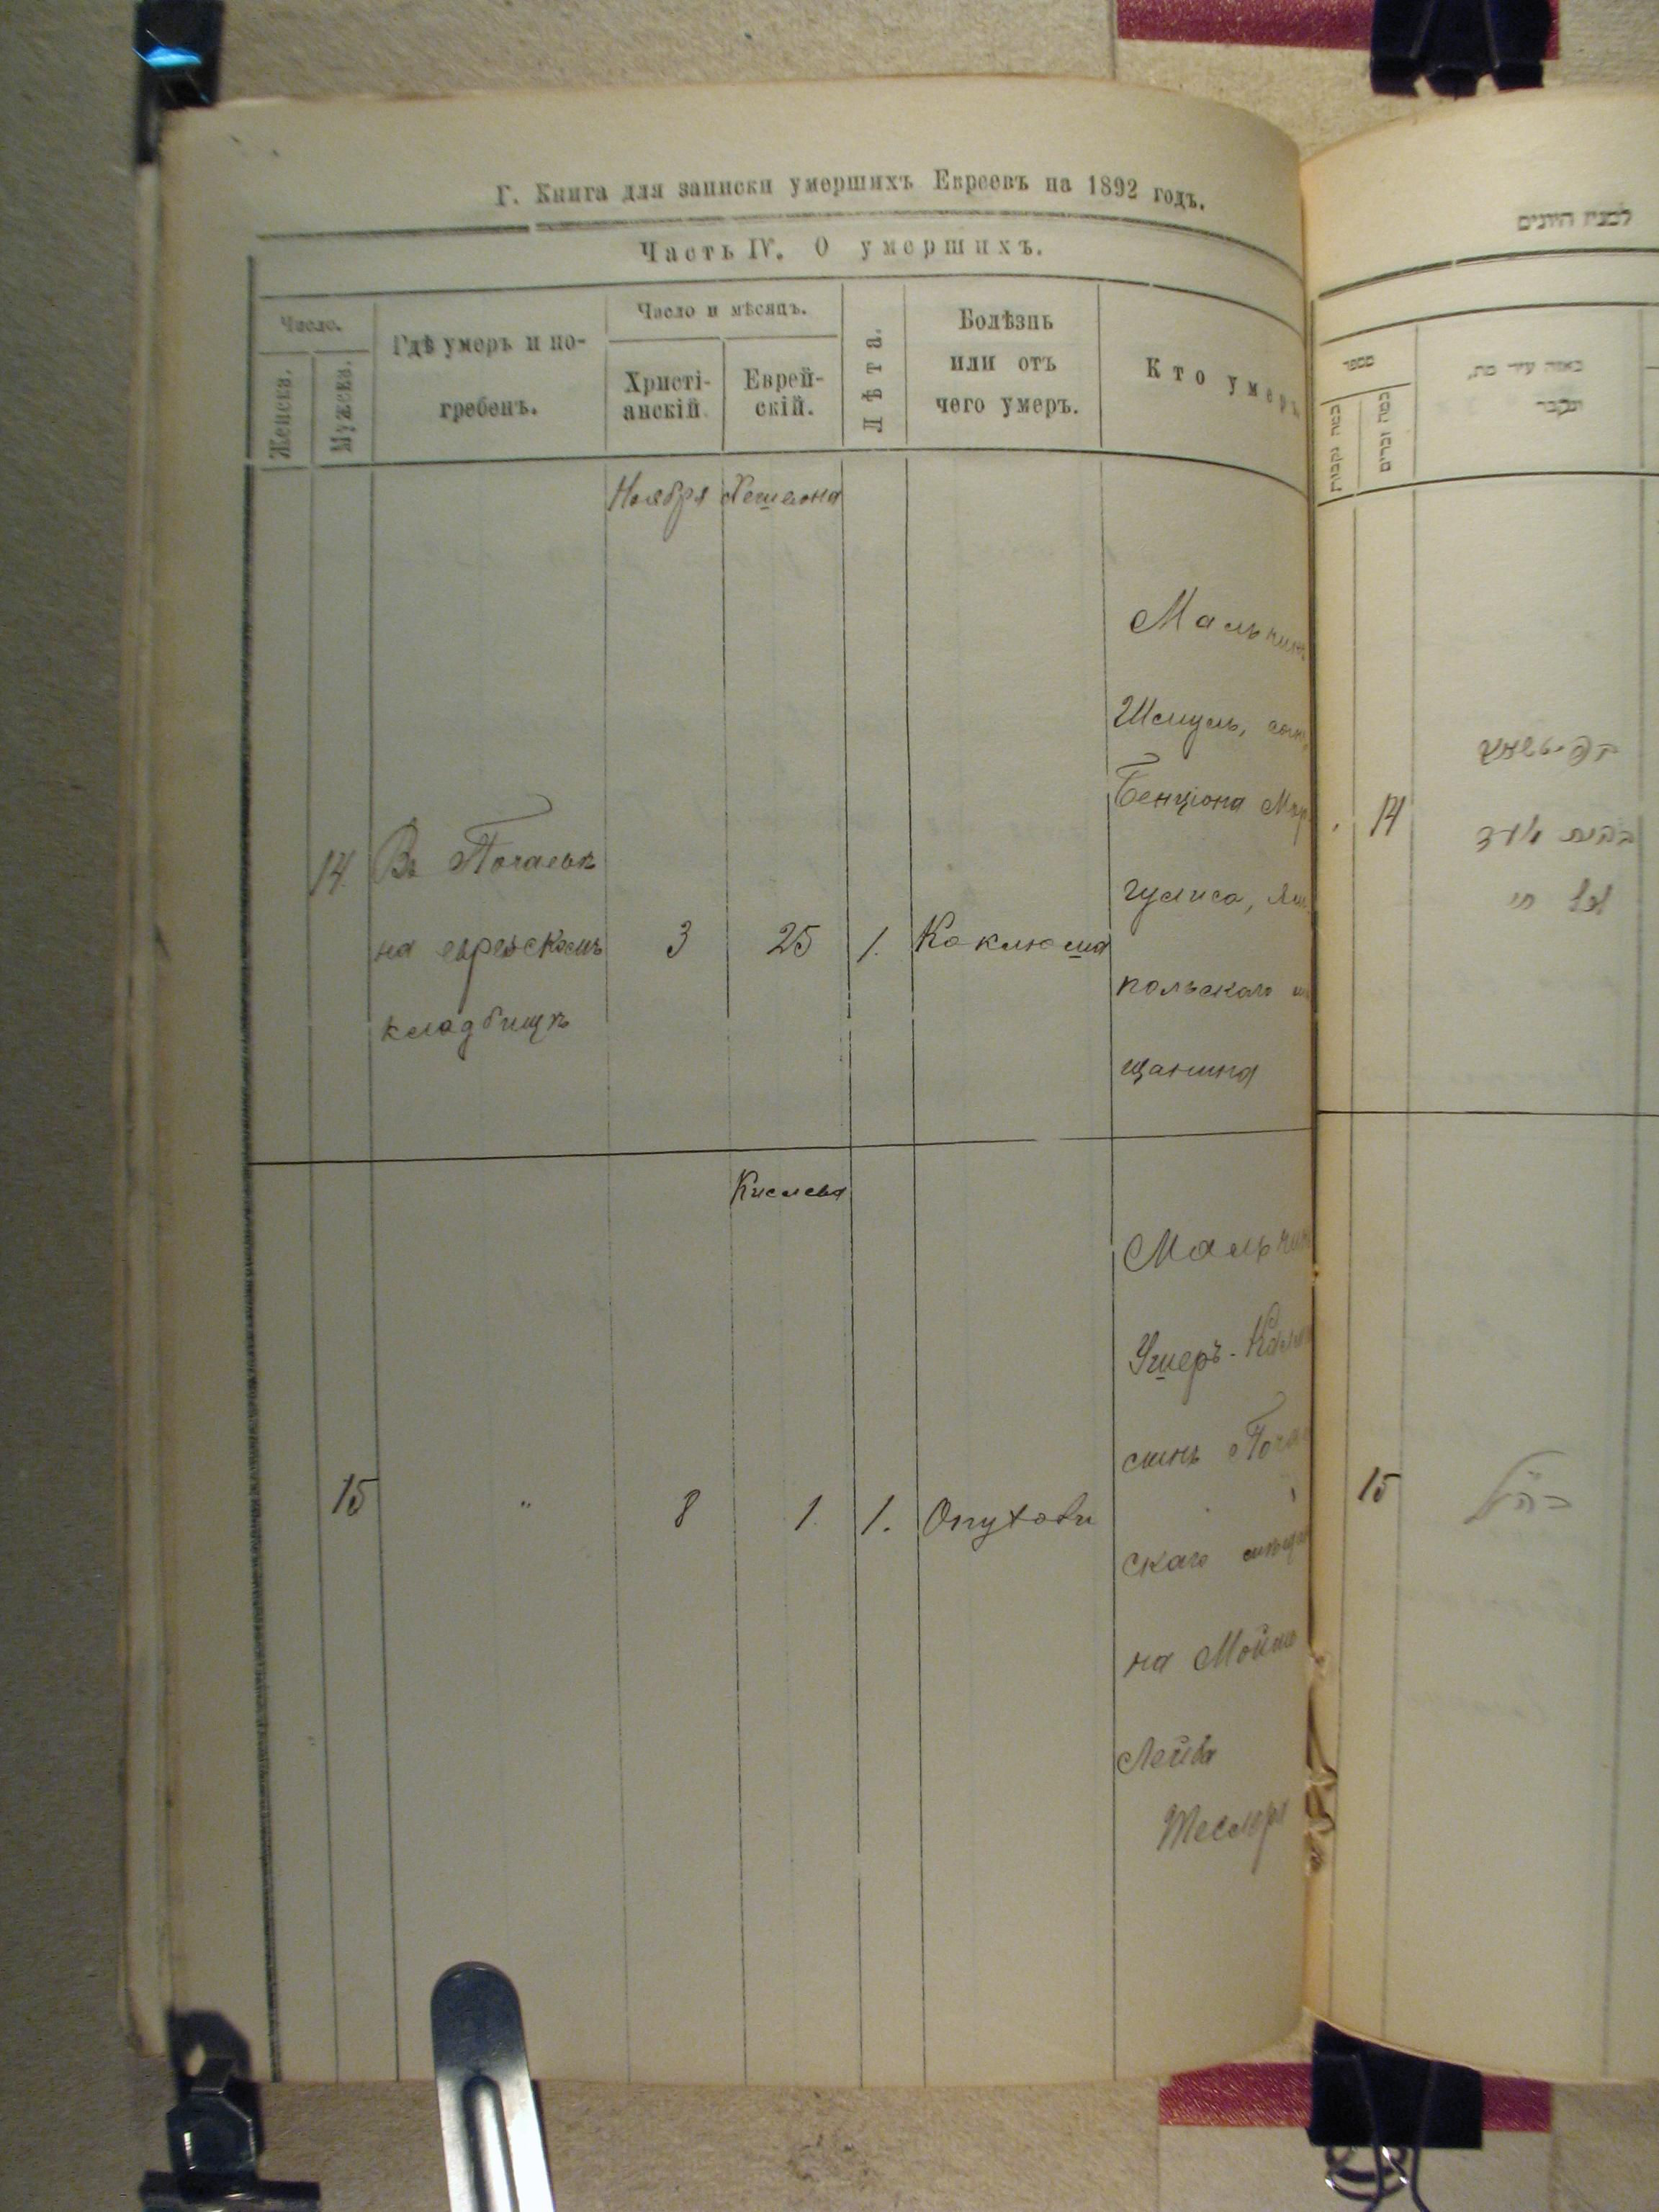 Г. Книга для записки умершихъ Евреевъ на 1892 годъ.
Часть IV. О умершихъ.
Число.
Женска.
Мужеска.
Гдѣ умеръ и по-
гребенъ.
Число и мѣсяцъ.
Христі-
анскій.
Еврей-
скій.
Лѣта.
Болѣзнь
или отъ
чего умеръ.
Кто умеръ
Ноября Хешвона
14
Въ Почаевѣ
на еврейскомъ
кладбищѣ
3
25
1.
Коклюша
Мальчикъ
Шмуль, сынъ
Бенціона Мар
гулиса, Ям
польскаго
щанина
Кислева
15
"
8
1
1.
Опухоли
Мальчик
Ушеръ-
сынъ Поча
скаго мѣща
на Мойше
Лейба
Теслера
למנין היונים
מספר
כמה נקבות
כמה זכרים
באיזה עיר מת,
ונקבר
14
15